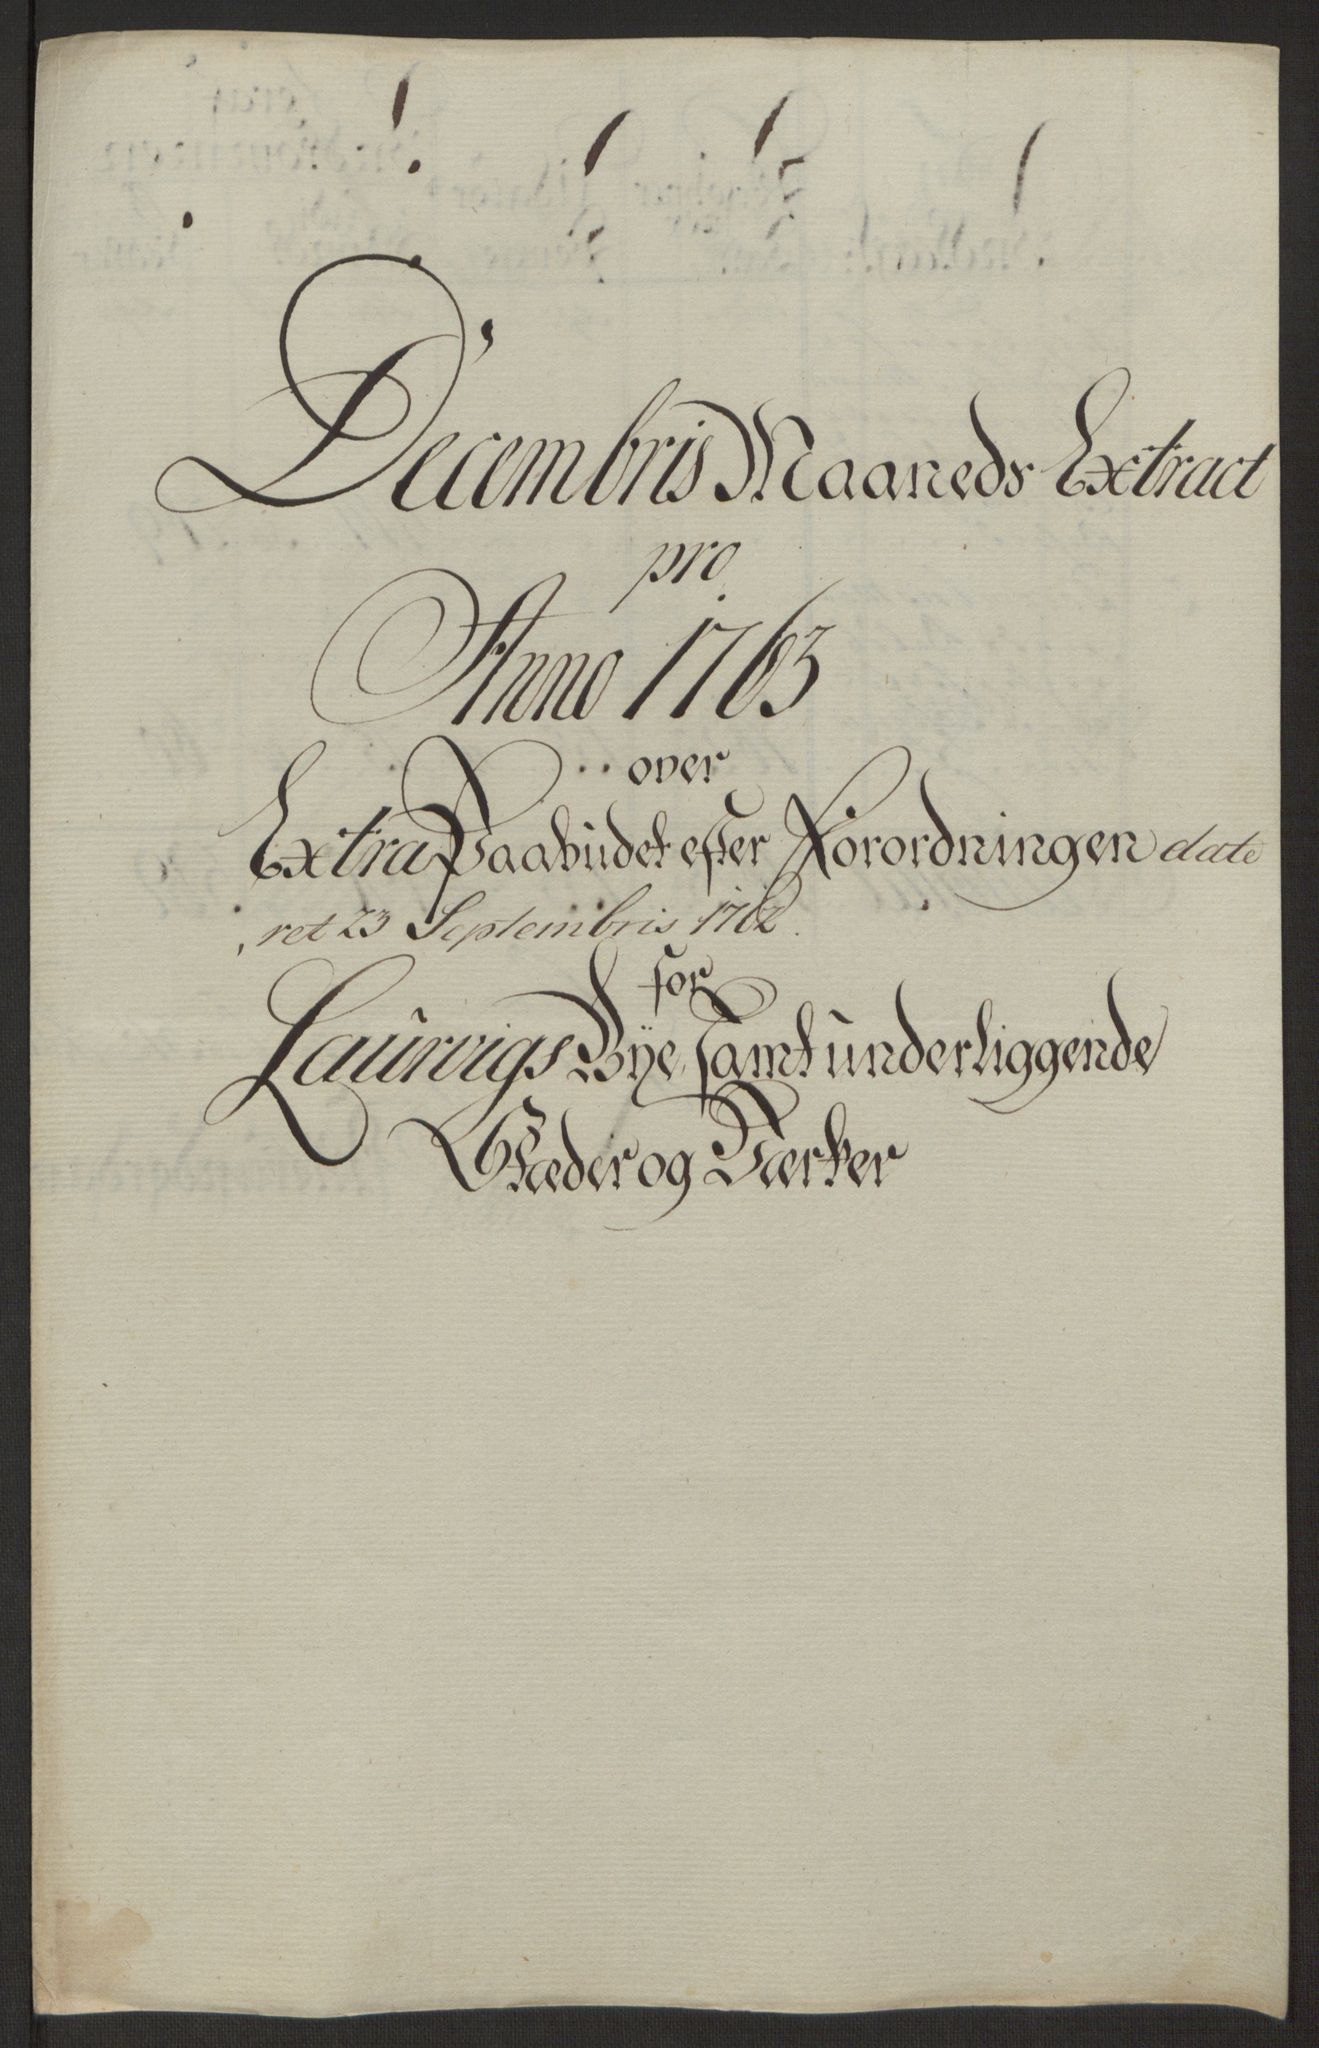 Decembris Maaneds Extract
pro
Anno 1763
over
Extra Paabudet efter Forordningen date
ret 23 Septembris 1762.
for
Laurvigs Bÿe, samt underliggende
Stæder og Værker